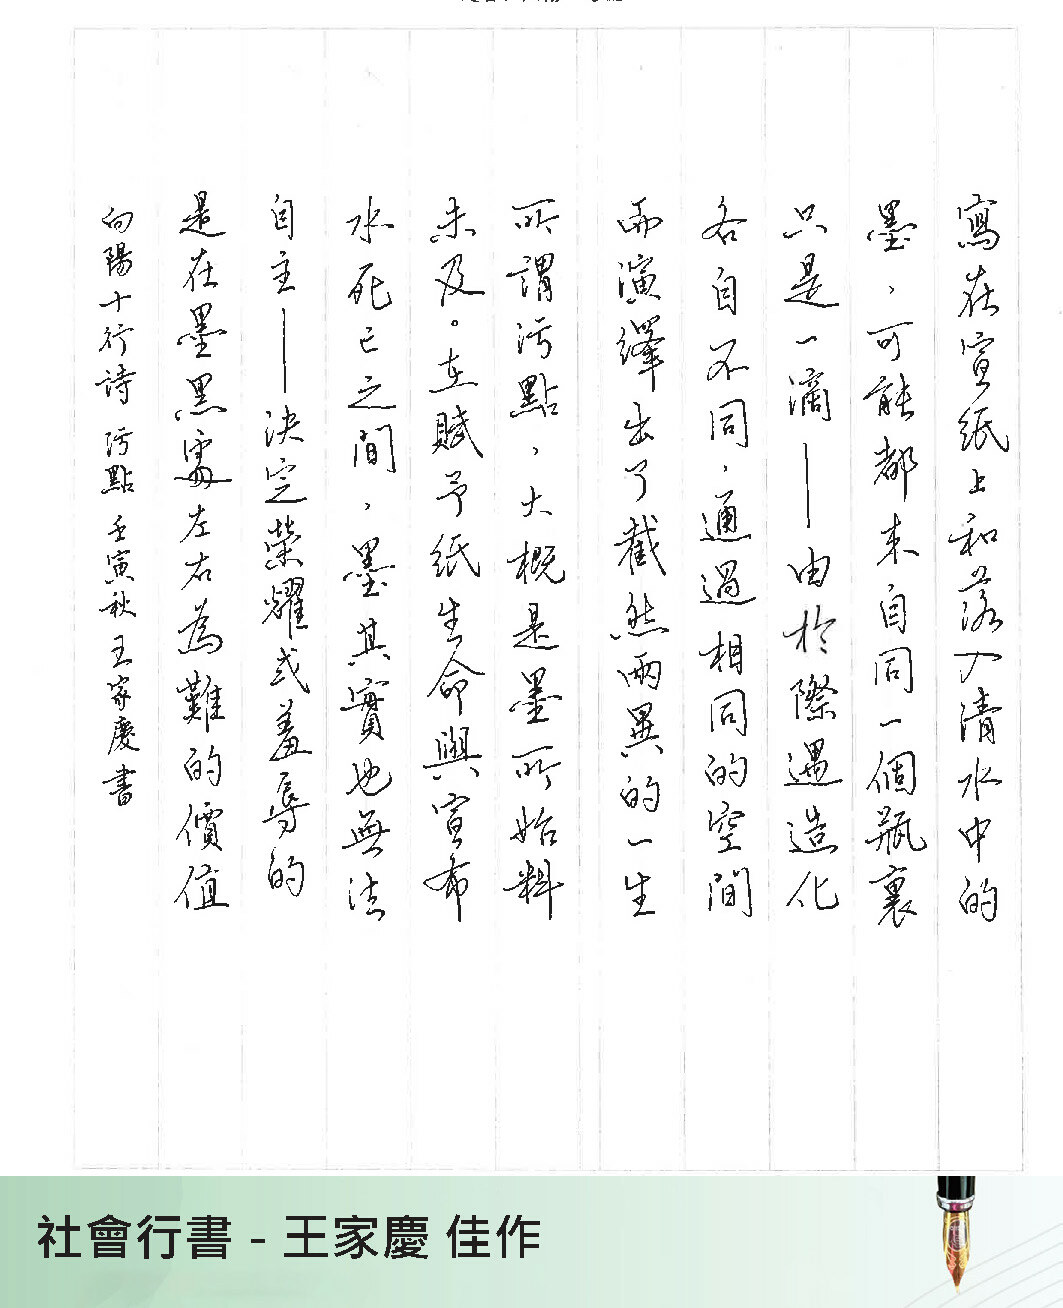 寫在宣紙上和落入清水中的
墨，可能都來自同一個瓶裏
只是一滴——由於際遇造化
各自不同，通過相同的空間
而演繹出了截然兩異的一生
所謂污點，大概是墨所始料
未及。在賦予紙生命與宣布
水死亡之間，墨其實也無法
自主——決定榮耀或羞辱的
是在墨黑處左右為難的價值
向陽十行詩 污點 壬寅秋 王家慶書
社會行書 - 王家慶 佳作